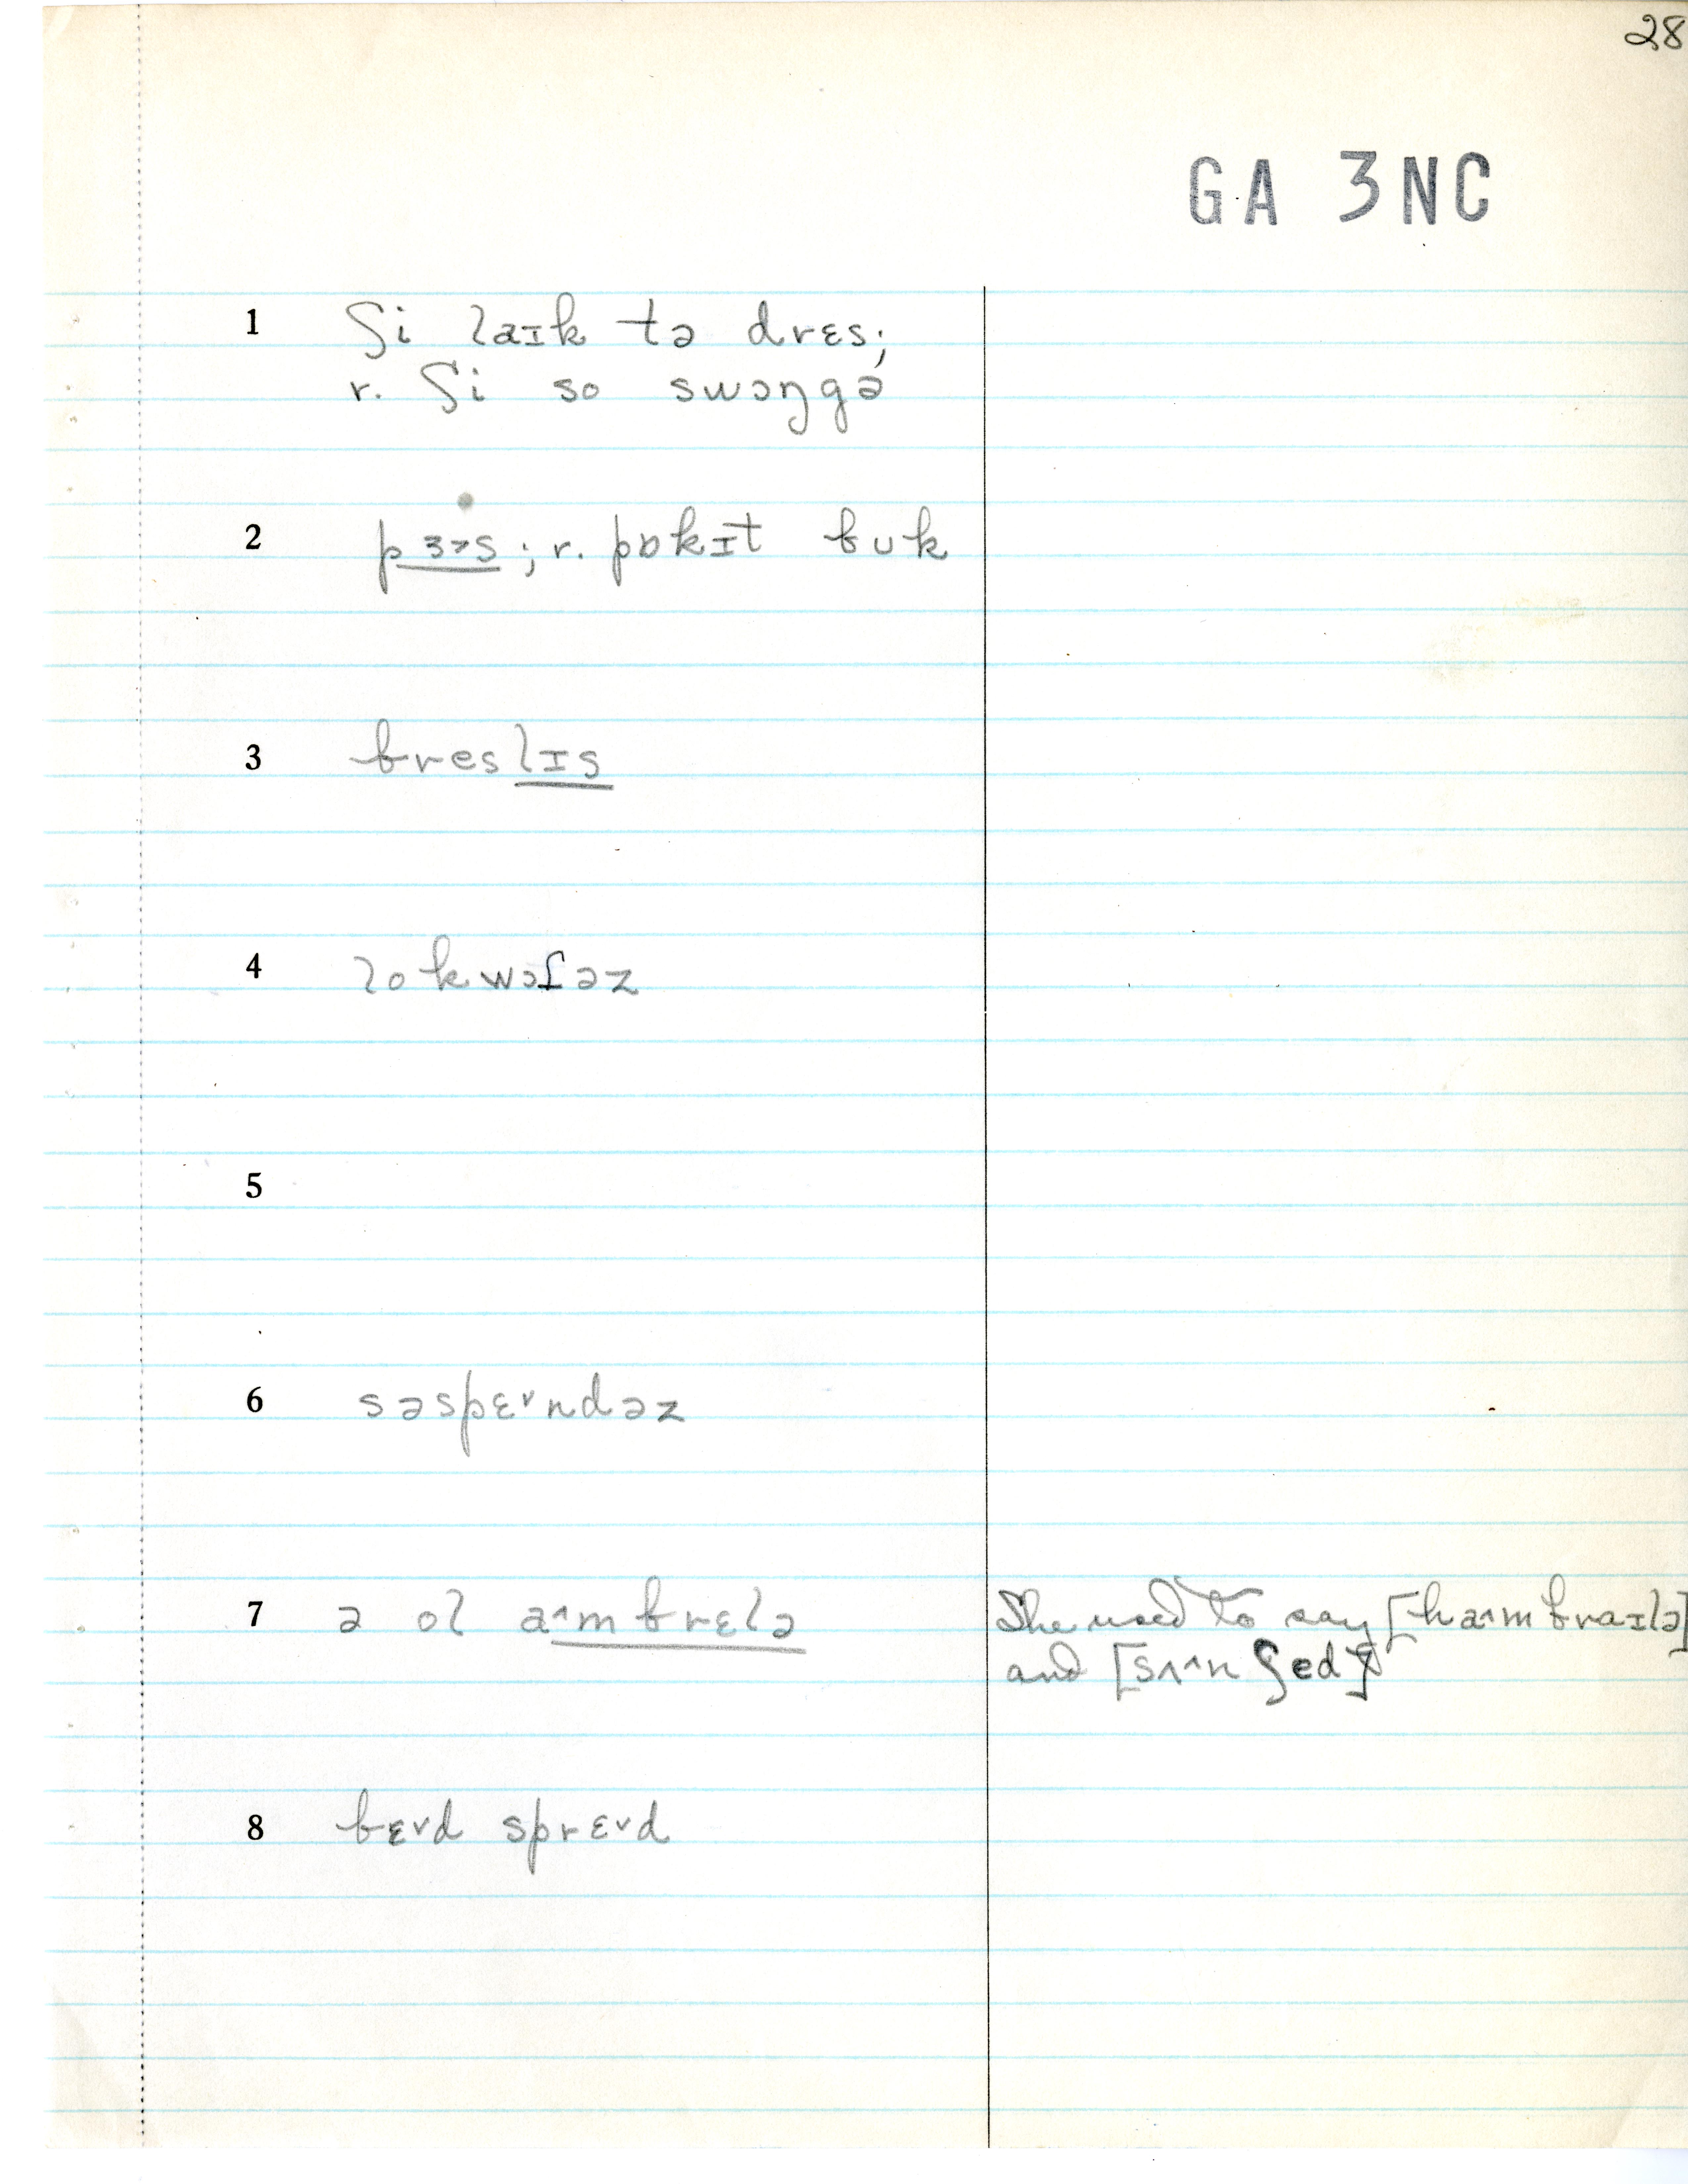 28
GA 3NC
1 ʃi laɪk tə drɛs;
r. ʃi so swɔŋgə
2 pɜ˃s; r. pɒkɪt bʊk
3 breslɪs
4 lokwɔʃəz
5
6 səspɛ˅ndəz
7 ə ol a˄mbrɛlə She used to say [ha˄mbraɪlə]
and [sʌ˄nʃed]
8 bɛ˅d sprɛ˅d